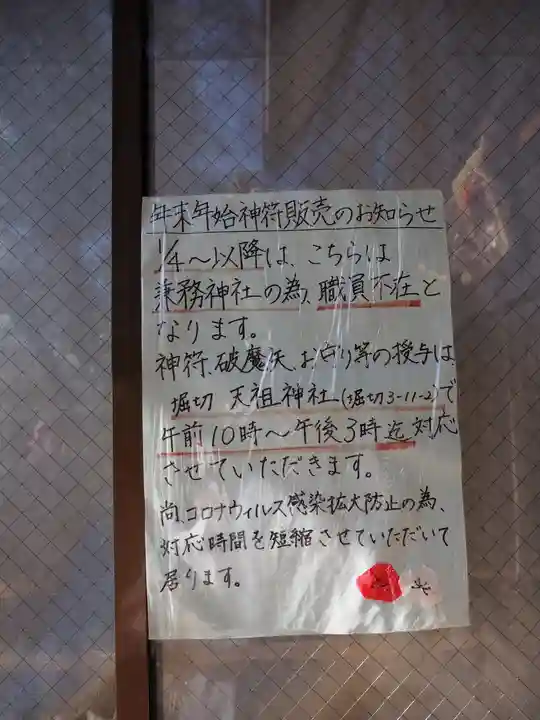 年末年始神符販売のお知らせ
1/4～以降は、こちらは
兼務神社の為、職員不在と
なります。
神符、破魔矢、お守り等の授与は、
堀切 天祖神社(堀切3-11-2)で
午前10時～午後3時迄対応
させていただきます。
尚、コロナウィルス感染拡大防止の為、
対応時間を短縮させていただいて
居ります。